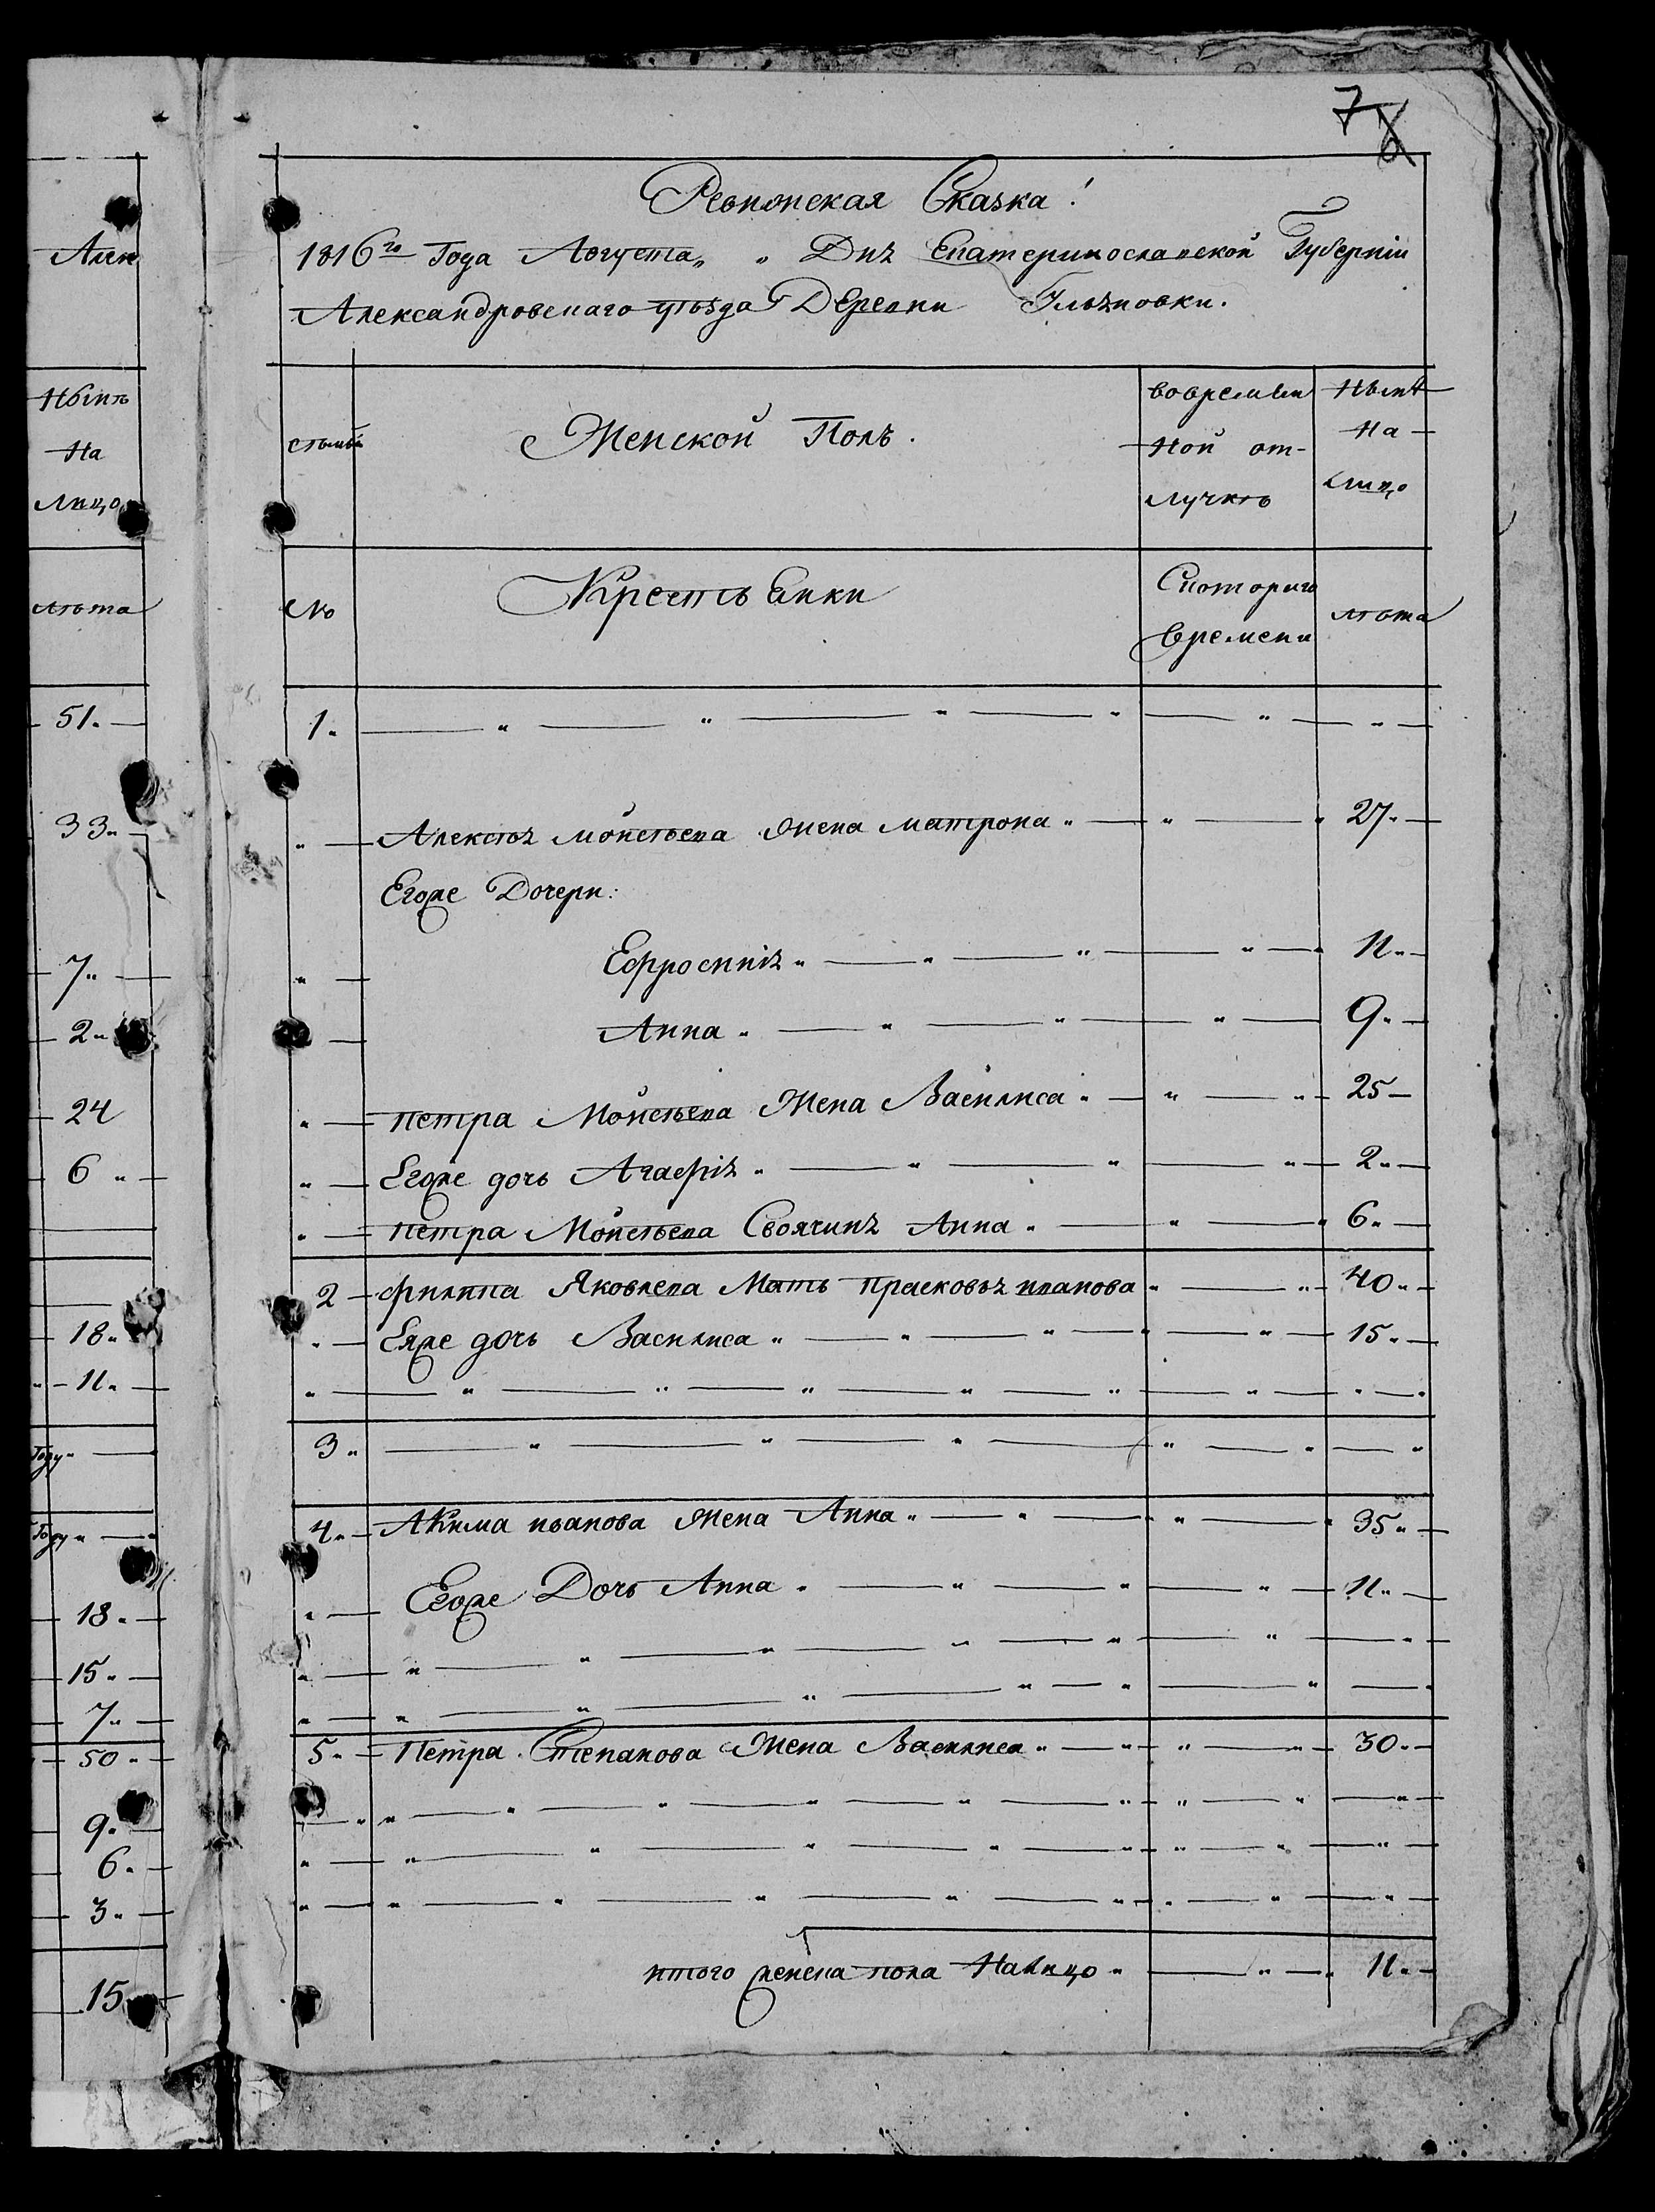 7 8
Ревизская Сказка!
1816го Года Августа „ „ Дня Екатеринославской Губерніи
Александровскаго уѣзда Деревни Ильяновки.
Алек
Нынѣ
На
Лицо
лѣта
51
33
7
2
24
6
18
11
Году
Году
18
15
7
50
9
6
3
15
семьи
Женской Полъ.
вовремян
ной от-
лучкѣ
Нынѣ
На
лицо
№
Крестьянки
Скотораго
времени
лѣта
1
Алексѣя мойсѣева жена матрона 27
Егоже Дочери:
Ефросиніа 11
Анна 9
петра Мойсѣева Жена Василиса 25
Егоже дочь Агафіа 2
петра Мойсѣева Своячина Анна 6
2 филипа Яковлева Мать прасковья иванова 40
Еяже дочь Василиса 15
3
4 Акима иванова жена Анна 35
Егоже Дочь Анна 11
5 Петра Степанова Жена Василиса 30
итого женска пола На лицо 11